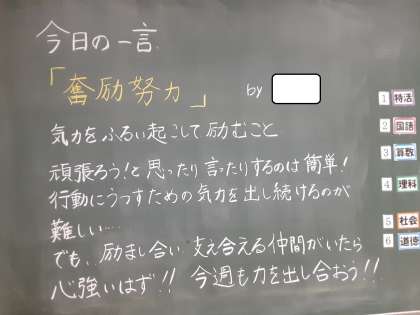 今日の一言
「奮励努力」 by
気力をふるい起こして励むこと
頑張ろう!と思ったり言ったりするのは簡単!
行動にうつすための気力を出し続けるのが
難しい…
でも、励まし合い支え合える仲間がいたら
心強いはず!!今週も力を出し合おう!!
1 特活
2 国語
3 算数
4 理科
5 社会
6 道徳